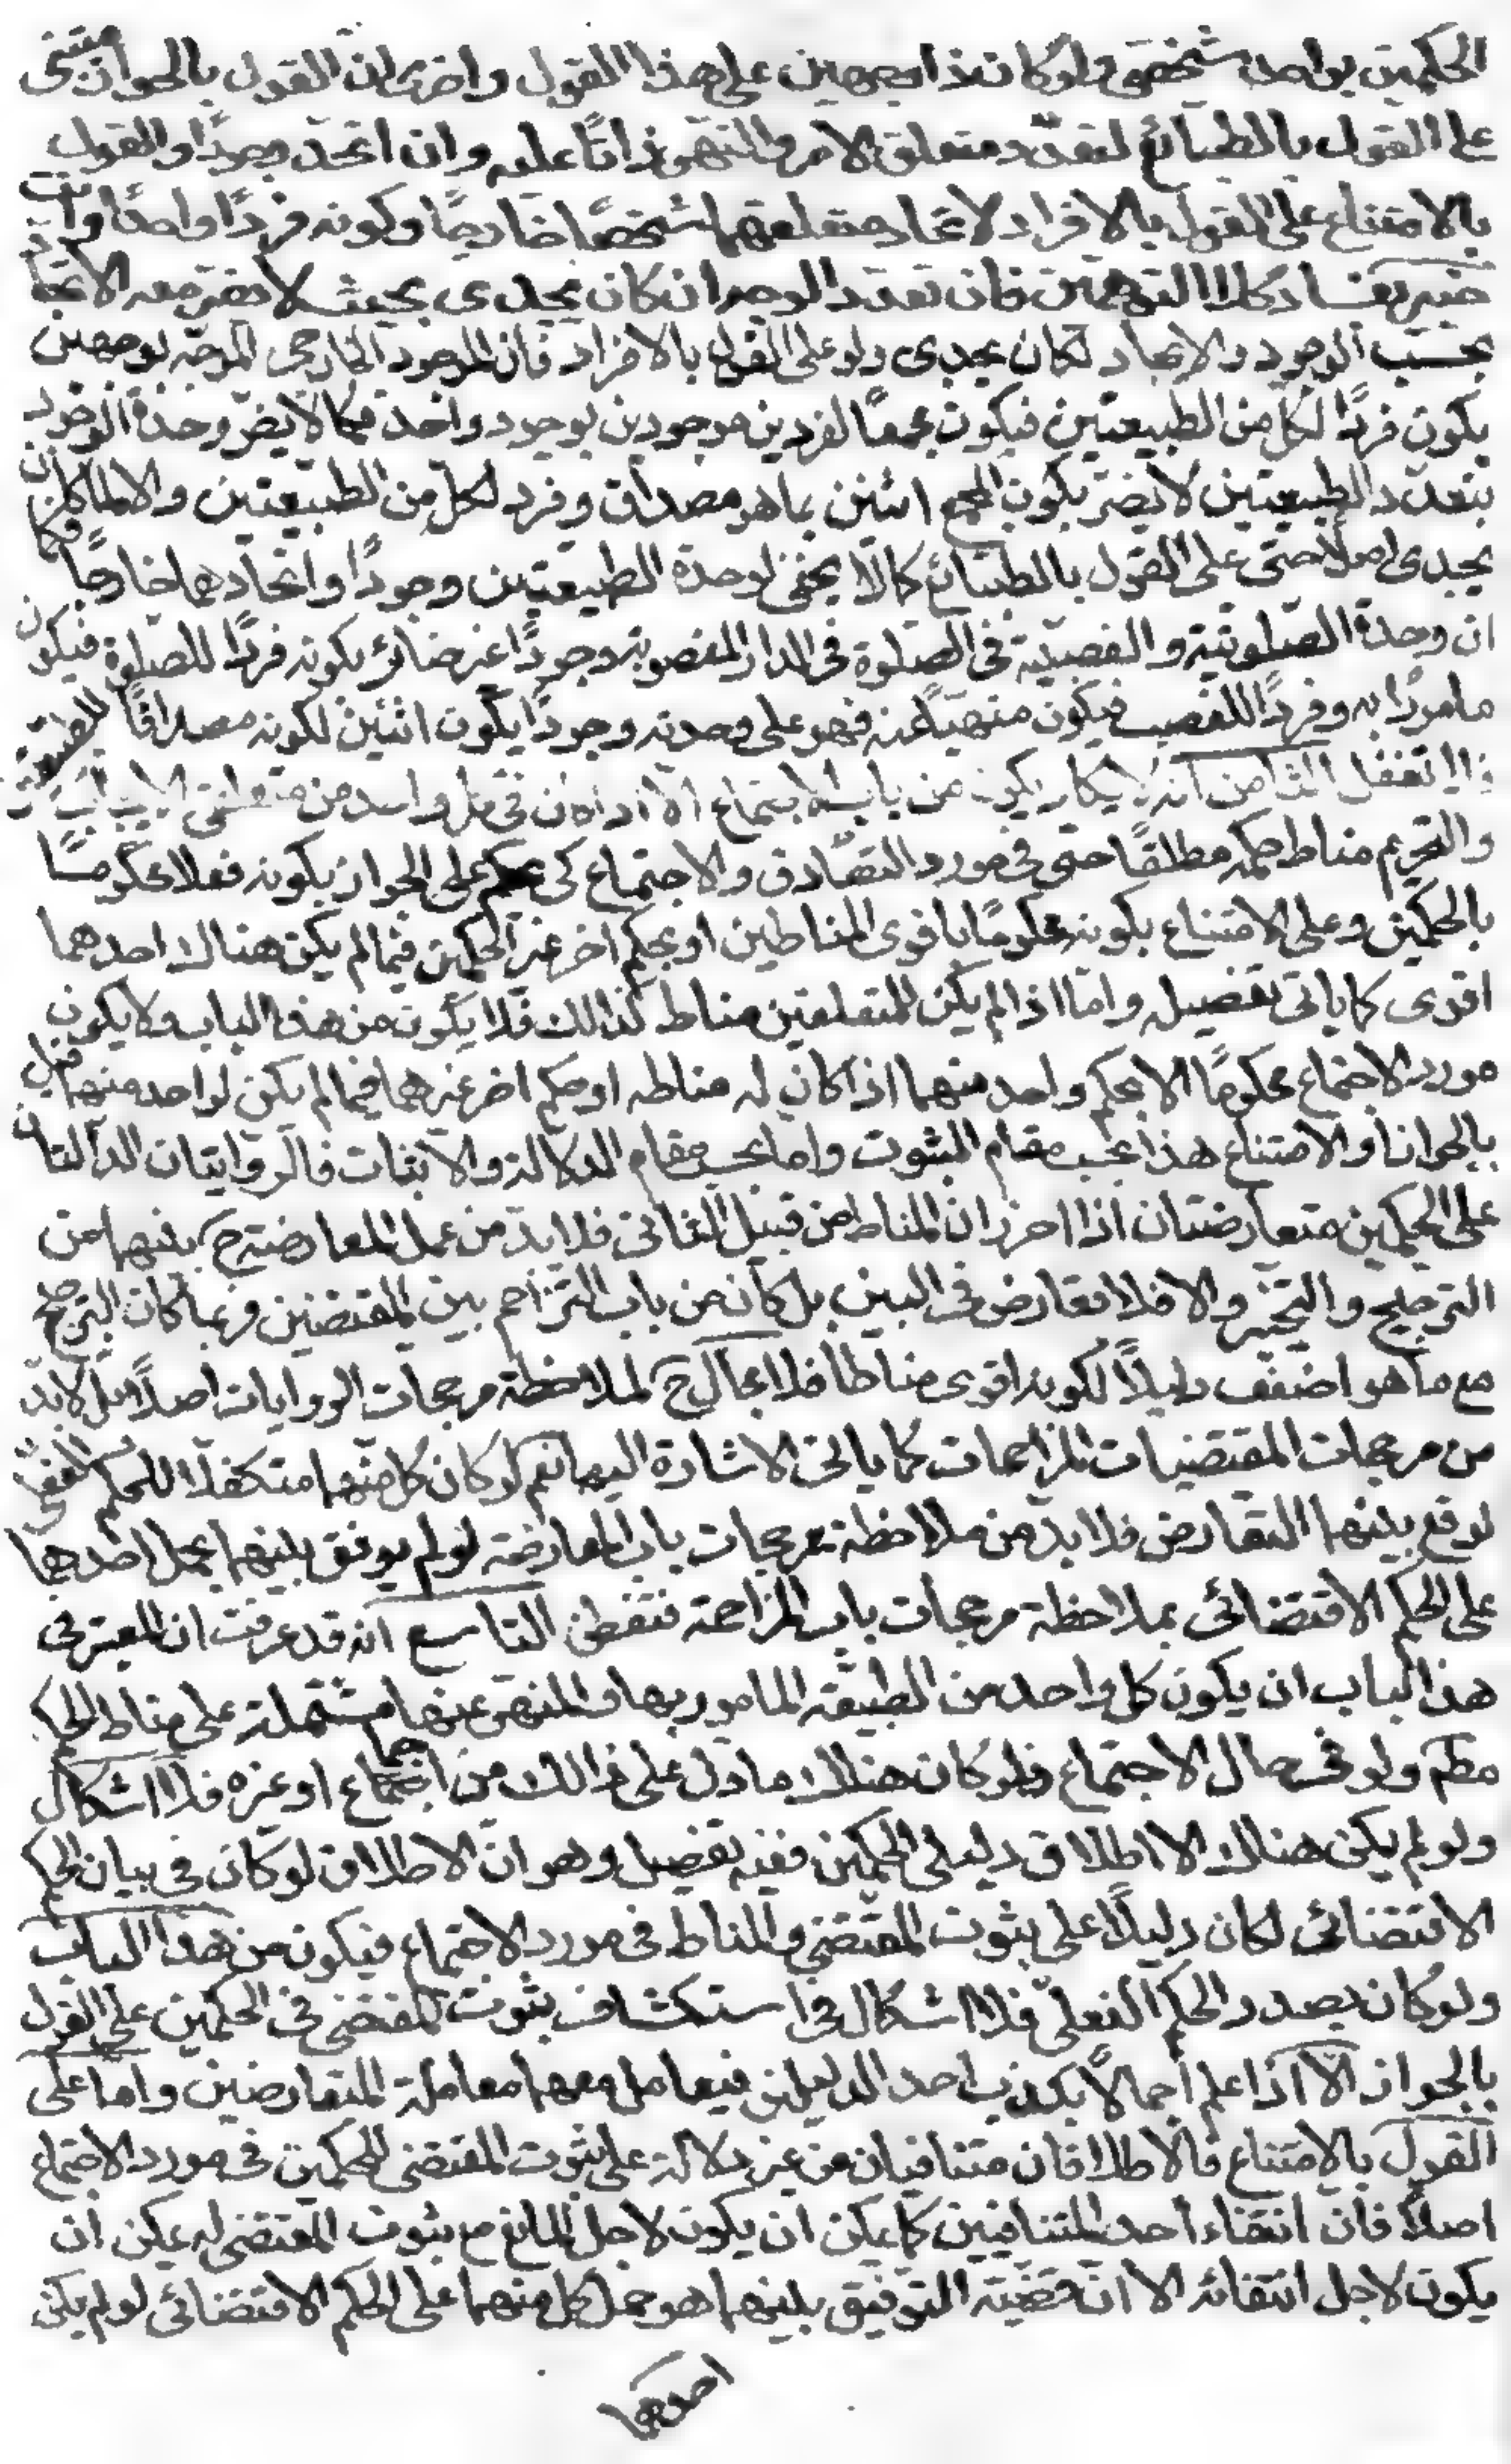 الحكمين بواحد شخصى ولو كان ذا وجهين على هذا القول واخرى ان القول بالجواز مبتنى
على القول بالطبائع لتعدّد متعلق الامر والنهى ذاتًا عليه وان اتحد وجودًا والقول
بالامتناع على القول بالافراد لاتحاد متعلقهما شخصًا خارجًا وكونه فردًا واحدًا وانت
خبير بفساد كلا التوهمين فان تعدد الوجه ان كان يجدى بحيث لا يضر معه الاتحاد
بحسب الوجود والايجاد لكان يجدى ولو على القول بالافراد فان الموجود الخارجى الموجّه بوجهين
يكون فردًا لكل من الطبيعتين فيكون مجمعًا لفردين موجودين بوجود واحد فكما لا يضر وحدة الوجود
بتعدّد الطبيعتين لا يضر بكون المجمع اثنين بما هو مصداق وفرد لكل من الطبيعتين والا لما كان
يجدى اصلًا حتى على القول بالطبائع كما لا يخفى لوحدة الطبيعتين وجودًا واتحادهما خارجًا فكما
ان وحدة الصلوتية والغصبية فى الصلوة فى الدار المغصوبة وجودًا غير ضائر بكونه فردًا للصلوة فيكون
مامورًا به وفردًا للغصب فيكون منهيًا عنه فهو على وحدته وجودًا يكون اثنين لكونه مصداقًا للطبيعتين
فلا تغفل الثامن انه لا يكاد يكون من باب الاجتماع الا اذا كان فى كل واحد من متعلقى الايجاب
والتحريم مناط حكمه مطلقًا حتى فى مورد التصادق والاجتماع كى يحكم على الجواز بكونه فعلا محكومًا
بالحكمين وعلى الامتناع بكونه محكومًا باقوى المناطين او بحكم اخر غير الحكمين فيما لم يكن هناك احدهما
اقوى كما ياتى تفصيله واما اذا لم يكن للمتعلقين مناط كذلك فلا يكون من هذا الباب ولا يكون
مورد الاجتماع محكومًا الا بحكم واحد منهما اذا كان له مناطه او حكم اخر غيرهما فيما لم يكن لواحد منهما قيل
بالجواز او الامتناع هذا بحسب مقام الثبوت واما بحسب مقام الدلالة والاثبات فالروايتان الدالتان
على الحكمين متعارضتان اذا احرز ان المناط من قبيل الثانى فلا بد من عمل المعارضة ح بينهما من
الترجيح والتخيير والا فلا تعارض فى البين بل كان من باب التزاحم بين المقتضيين فربما كان الترجيح
مع ما هو اضعف دليلًا لكونه اقوى مناطا فلا مجال ح لملاحظة مرجحات الروايات اصلًا بل لا بد
من مرجحات المقتضيات المزاحمات كما ياتى الاشارة اليها نعم لو كان كل منهما متكفلا للحكم الفعلى
لوقع بينهما التعارض فلا بد من ملاحظة مرجحات باب المعارضة لو لم يوفق بينهما بحمل احدهما
على الحكم الاقتضائى بملاحظة مرجحات باب المزاحمة فتفطن التاسع انه قد عرفت ان المعتبر فى
هذا الباب ان يكون كل واحد من الطبيعة المامور بها والمنهى عنها مشتملة على مناط الحكم
مطم ولو فى حال الاجتماع فلو كان هناك ما دل على ذالك من اجماع او غيره فلا اشكال
ولو لم يكن هناك الا اطلاق دليلى الحكمين ففيه تفصيل وهو ان الاطلاق لو كان فى بيان الحكم
الاقتضائى لكان دليلًا على ثبوت المقتضى والمناط فى مورد الاجتماع فيكون من هذا الباب
ولو كان بصدد الحكم الفعلى فلا اشكال فى استكشاف ثبوت المقتضى فى الحكمين على القول
بالجواز الا اذا علم اجمالًا بكذب احد الدليلين فيعامل معهما معاملة المتعارضين واما على
القول بالامتناع فالاطلاقان متنافيان من غير دلالة على ثبوت المقتضى للحكمين فى مورد الاجتماع
اصلًا فان انتفاء احد المتنافيين كما يمكن ان يكون لاجل المانع مع ثبوت المقتضى له يمكن ان
يكون لاجل انتفائه الا ان قضية التوفيق بينهما هو حمل كل منهما على الحكم الاقتضائى لو لم يكن
احدهما